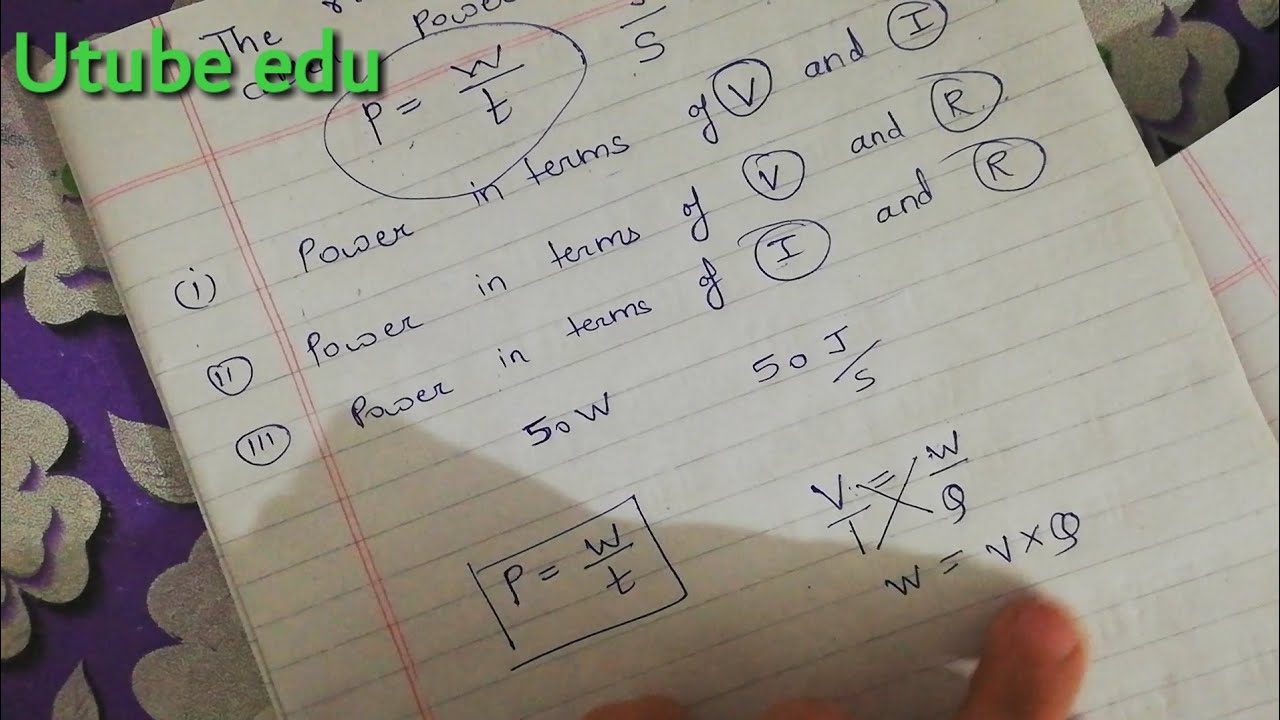 Utube edu
The
power
P = W/t
J/S
(i) Power in terms of V and I
(ii) Power in terms of V and R
(iii) Power in terms of I and R
50 W 50 J/s
V/1 = W/Q
W = V × Q
P = W/t